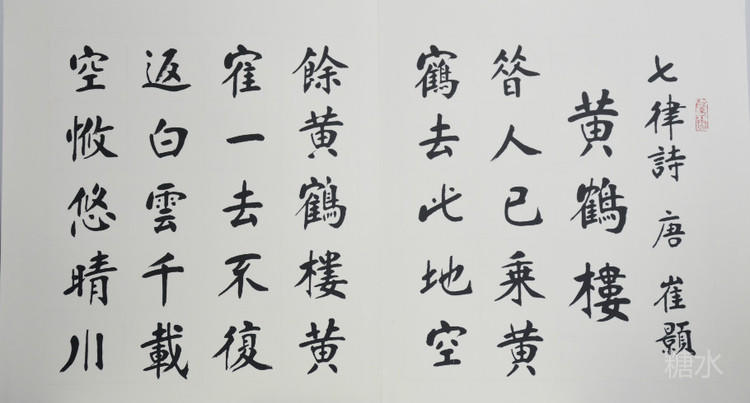 七律詩 唐 崔顥
黄鶴樓
昝人已乘黄
鶴去此地空
餘黄鶴樓黄
寉一去不復
返白雲千載
空悠悠晴川
糖水